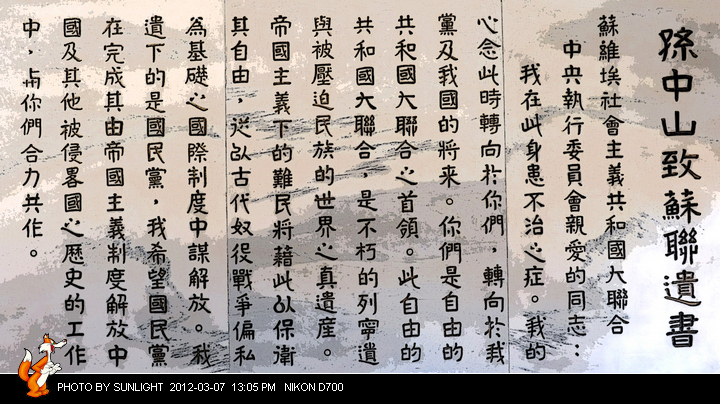 孫中山致蘇聯遺書
蘇維埃社會主義共和國大聯合
中央執行委員會親愛的同志：
我在此身患不治之症。我的
心念此時轉向於你們，轉向於我
黨及我國的將來。你們是自由的
共和國大聯合之首領。此自由的
共和國大聯合，是不朽的列寧遺
與被壓迫民族的世界之真遺產。
帝國主義下的難民將藉此以保衛
其自由，從以古代奴役戰爭偏私
為基礎之國際制度中謀解放。我
遺下的是國民黨，我希望國民黨
在完成其由帝國主義制度解放中
國及其他被侵略國之歷史的工作
中，與你們合力共作。
PHOTO BY SUNLIGHT 2012-03-07 13:05 PM NIKON D700